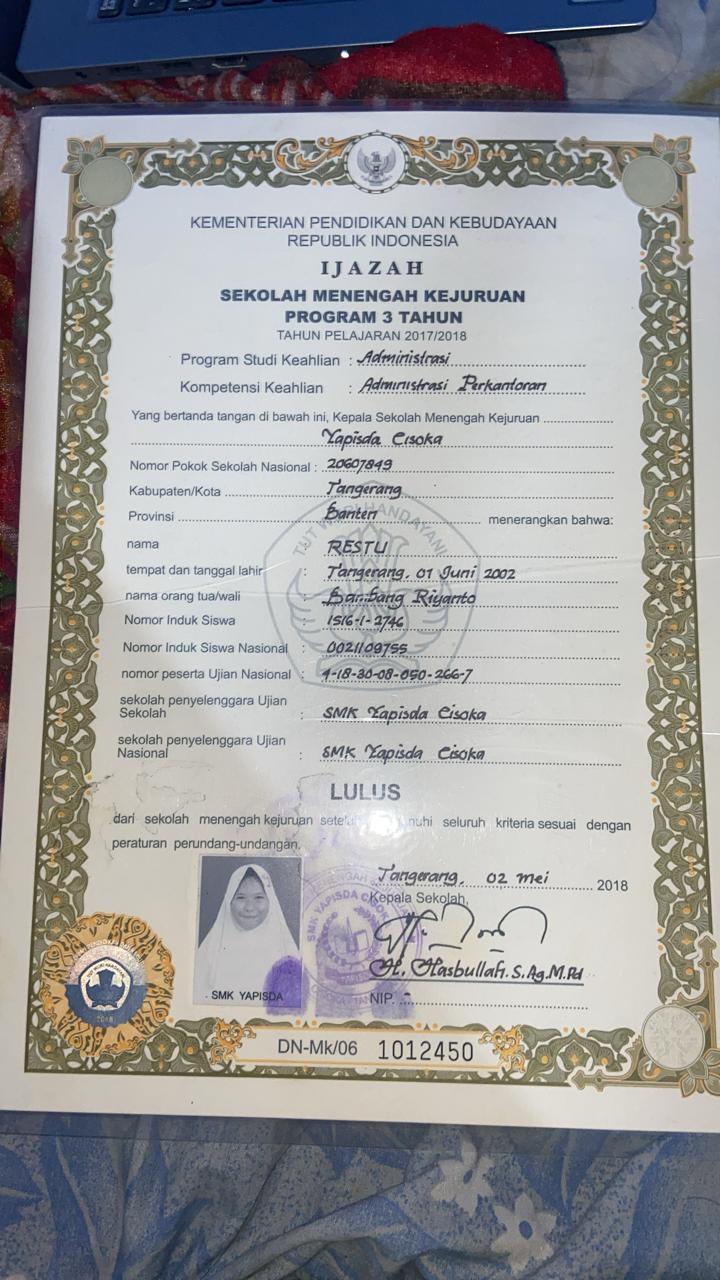 KEMENTERIAN PENDIDIKAN DAN KEBUDAYAAN
REPUBLIK INDONESIA
IJAZAH
SEKOLAH MENENGAH KEJURUAN
PROGRAM 3 TAHUN
TAHUN PELAJARAN 2017/2018
Program Studi Keahlian : Administrasi
Kompetensi Keahlian : Administrasi Perkantoran
Yang bertanda tangan di bawah ini, Kepala Sekolah Menengah Kejuruan
Yapisda Cisoka
Nomor Pokok Sekolah Nasional : 20607849
Kabupaten/Kota Tangerang
Provinsi Banten menerangkan bahwa:
TUT WURI HANDAYANI
nama : RESTU
tempat dan tanggal lahir : Tangerang, 01 Juni 2002
nama orang tua/wali : Bambang Riyanto
Nomor Induk Siswa : 1516-1-2746
Nomor Induk Siswa Nasional : 0021109755
nomor peserta Ujian Nasional : 4-18-30-08-050-266-7
sekolah penyelenggara Ujian
Sekolah : SMK Yapisda Cisoka
sekolah penyelenggara Ujian
Nasional : SMK Yapisda Cisoka
LULUS
dari sekolah menengah kejuruan seluruh kriteria sesuai dengan
peraturan perundang-undangan.
Tangerang, 02 mei 2018
Kepala Sekolah,
SMK YAPISDA CISOKA
H. Hasbullah. S.Ag.M.Pd
NIP. -
SMK YAPISDA
TUT WURI HANDAYANI
2018
DN-Mk/06 1012450